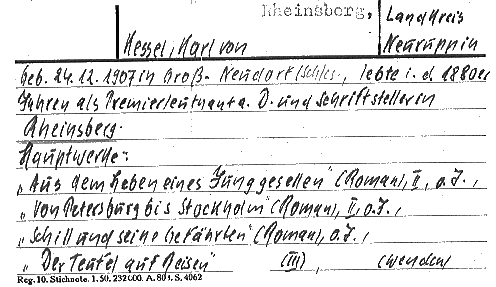 Rheinsberg, Landkreis
Hessel, Karl von Neuruppin
Geb. 24.12.1907 in Groß-Neudorf/Schles., lebte i. d. 1880er
Jahren als Premierleutnant a. D. und Schriftsteller in
Rheinsberg.
Hauptwerke:
„Aus dem Leben eines Junggesellen" (Roman), II, o. J.,
„Von Petersburg bis Stockholm" (Roman), II, o. J.,
„Schill und seine Gefährten" (Roman), o. J.,
„Der Teufel auf Reisen" (III), (wenden)
Reg. 10. Stichnote. 1. 50. 232000. A. 80 f. S. 4062